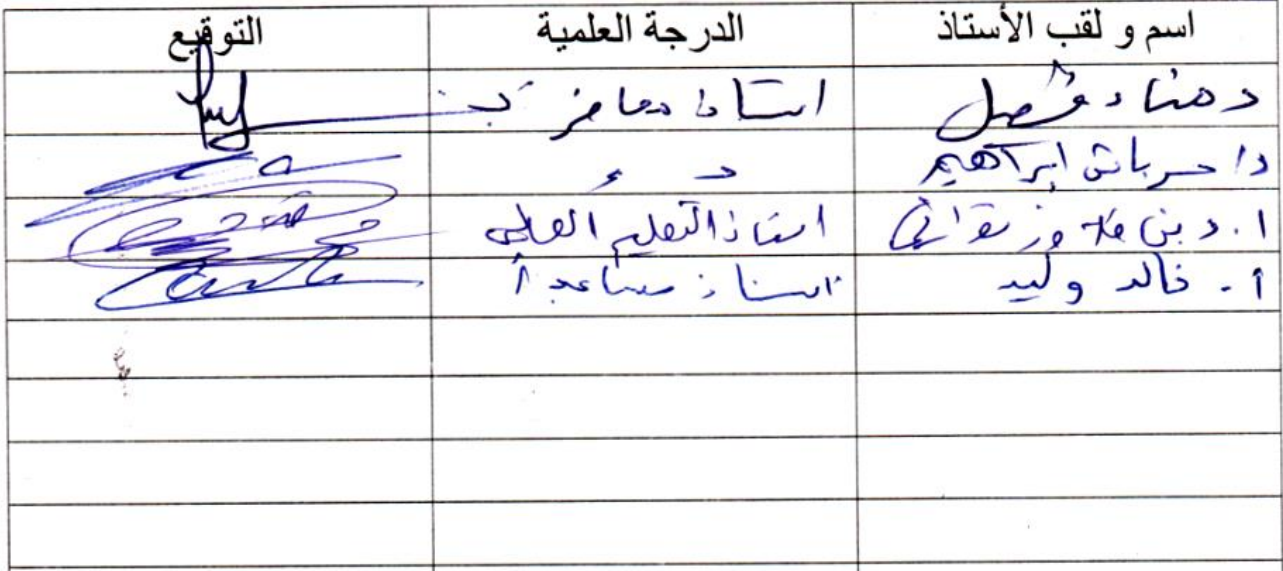 اسم و لقب الأستاذ الدرجة العلمية التوقيع
د هناء فيصل استاذ محاضر ب
د/ حرباش ابراهيم
ا. د بن استاذ التعليم العالي
أ. خالد وليد استاذ مساعد أ